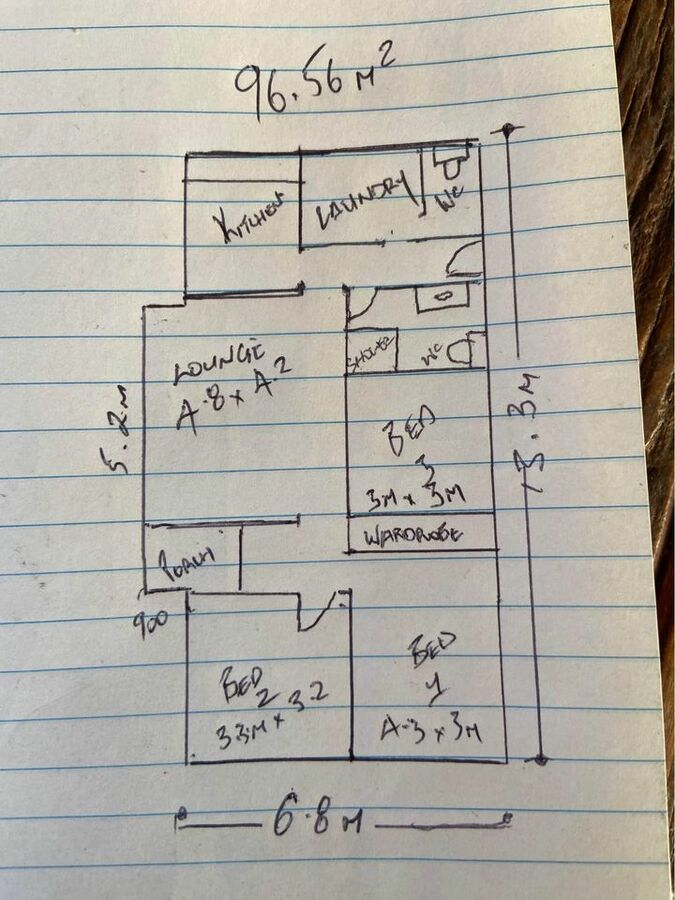 96.56 M²
KITCHEN
LAUNDRY
WC
LOUNGE
4.8 x 4.2
SHOWER
WC
BED
3
3M x 3M
WARDROBE
5.2M
13.3M
PORCH
900
BED
2
3.3M x 3.2
BED
1
4.3 x 3M
6.8 M